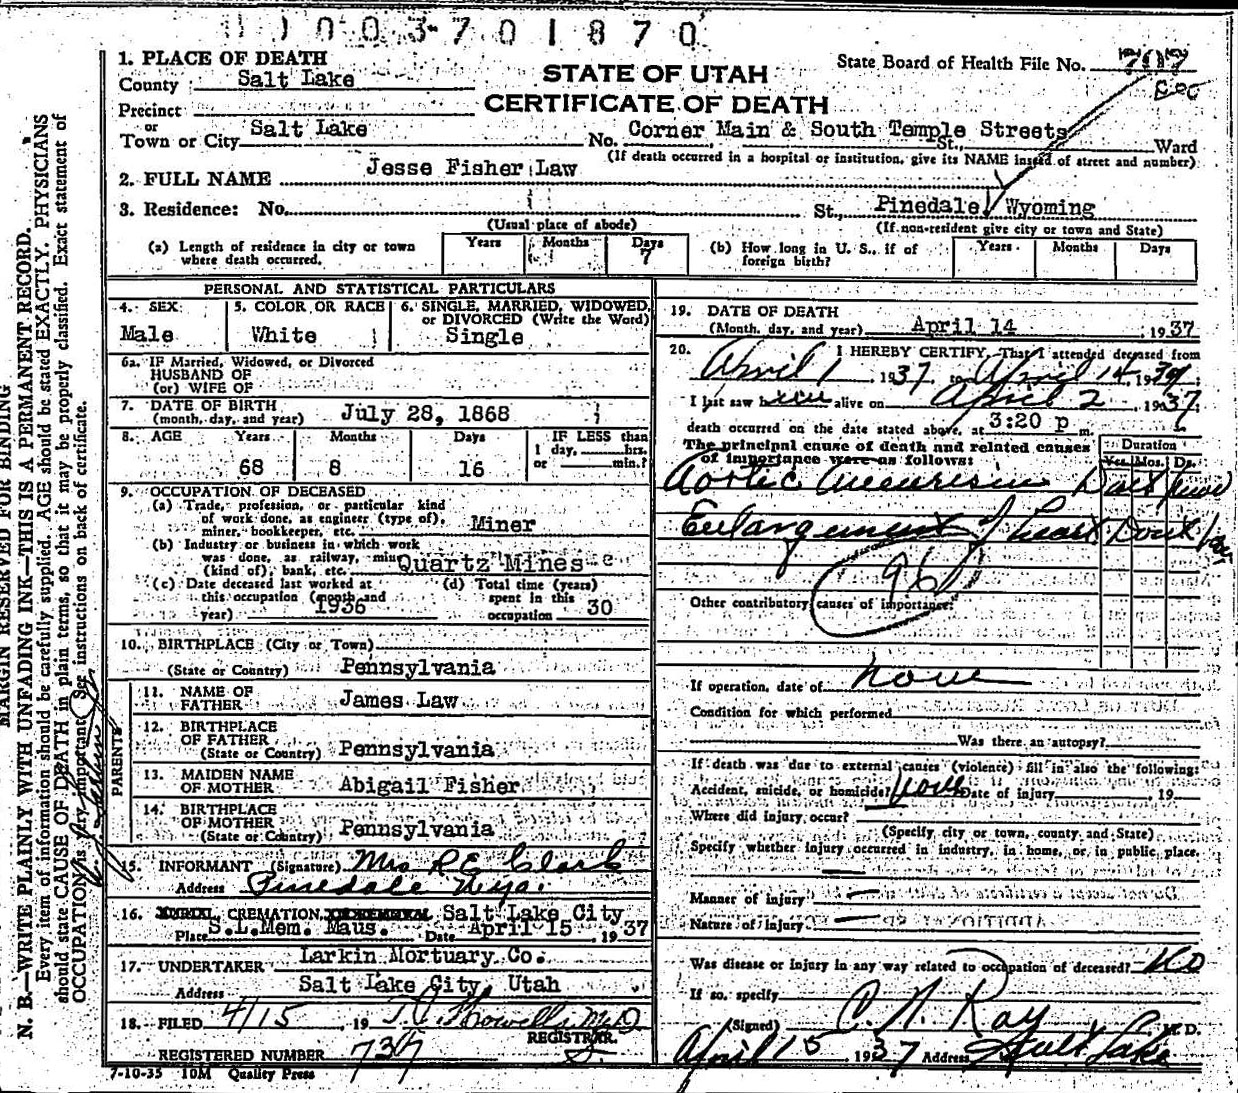 11003701870
1. PLACE OF DEATH
County Salt Lake
Precinct
or
Town or City Salt Lake
STATE OF UTAH
CERTIFICATE OF DEATH
State Board of Health File No. 707
No. Corner Main & South Temple Streets St., Ward
(If death occurred in a hospital or institution, give its NAME instead of street and number)
2. FULL NAME Jesse Fisher Law
3. Residence: No. St., Pinedale, Wyoming
(Usual place of abode) (If non-resident give city or town and State)
(a) Length of residence in city or town where death occurred. Years Months Days 7
(b) How long in U. S., if of foreign birth? Years Months Days
PERSONAL AND STATISTICAL PARTICULARS
4. SEX Male
5. COLOR OR RACE White
6. SINGLE, MARRIED, WIDOWED, or DIVORCED (Write the Word) Single
6a. IF Married, Widowed, or Divorced
HUSBAND OF
(or) WIFE OF
7. DATE OF BIRTH (month, day, and year) July 28, 1868
8. AGE Years 68 Months 8 Days 16 IF LESS than 1 day, hrs. or min.?
9. OCCUPATION OF DECEASED
(a) Trade, profession, or particular kind of work done, as engineer (type of), miner, bookkeeper, etc. Miner
(b) Industry or business in which work was done, as railway, mine (kind of), bank, etc. Quartz Mines
(c) Date deceased last worked at this occupation (month and year) 1936
(d) Total time (years) spent in this occupation 30
10. BIRTHPLACE (City or Town)
(State or Country) Pennsylvania
PARENTS
11. NAME OF FATHER James Law
12. BIRTHPLACE OF FATHER (State or Country) Pennsylvania
13. MAIDEN NAME OF MOTHER Abigail Fisher
14. BIRTHPLACE OF MOTHER (State or Country) Pennsylvania
15. INFORMANT (Signature) Mrs R E Clark
Address Pinedale Wyo.
16. BURIAL, CREMATION, OR REMOVAL Salt Lake City
Place S.L.Mem. Maus. Date April 15 1937
17. UNDERTAKER Larkin Mortuary Co.
Address Salt Lake City, Utah
18. FILED 4/15, 19 T. C. Howells MD
REGISTRAR.
REGISTERED NUMBER 737
7-10-35 10M Quality Press
19. DATE OF DEATH
(Month, day, and year) April 14 1937
20. I HEREBY CERTIFY, That I attended deceased from
April 1 1937 to April 14, 1937
I last saw h alive on April 2 1937
death occurred on the date stated above, at 3:20 p m.
The principal cause of death and related causes of importance were as follows: Duration Yrs. Mos. Ds.
Aortic Aneurism Dont know
Enlargement of heart Dont know
96
Other contributory causes of importance:
If operation, date of none
Condition for which performed
Was there an autopsy?
If death was due to external causes (violence) fill in also the following:
Accident, suicide, or homicide? none Date of injury , 19
Where did injury occur?
(Specify city or town, county and State)
Specify whether injury occurred in industry, in home, or in public place.
Manner of injury
Nature of injury
Was disease or injury in any way related to occupation of deceased? No
If so, specify
(Signed) C. N. Ray M. D.
April 15, 1937 Address Salt Lake
MARGIN RESERVED FOR BINDING
N. B.—WRITE PLAINLY WITH UNFADING INK—THIS IS A PERMANENT RECORD.
Every item of information should be carefully supplied. AGE should be stated EXACTLY. PHYSICIANS
should state CAUSE OF DEATH in plain terms, so that it may be properly classified. Exact statement of
OCCUPATION is very important. See instructions on back of certificate.